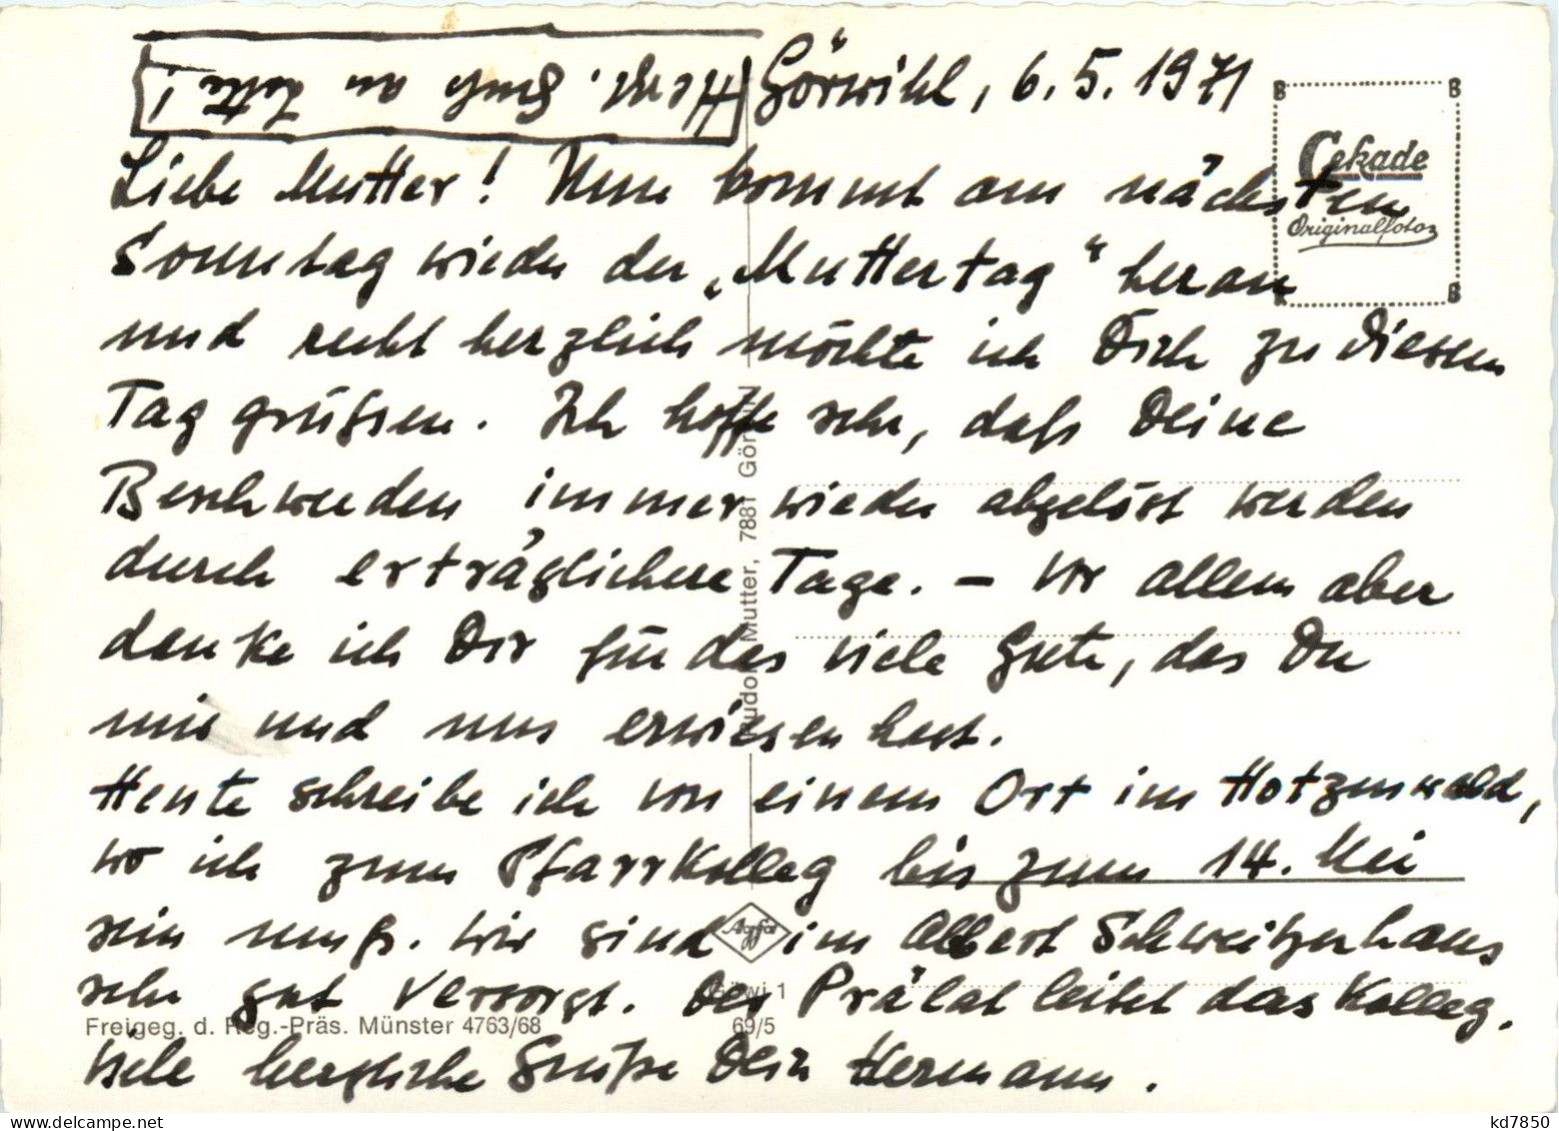 Herzl. Gruß an Lotte!
Görwihl, 6.5.1971
Liebe Mutter! Nun kommt am nächsten
Sonntag wieder der „Muttertag“ heran
und recht herzlich möchte ich Dich zu diesem
Tag grüßen. Ich hoffe sehr, daß Deine
Beschwerden immer wieder abgelöst werden
durch erträglichere Tage. – Vor allem aber
danke ich Dir für das viele Gute, das Du
mir und uns erwiesen hast.
Heute schreibe ich von einem Ort im Hotzenwald,
wo ich zum Pfarrkolleg bis zum 14. Mai
sein muß. Wir sind im Albert Schweitzerhaus
sehr gut versorgt. Der Prälat leitet das Kolleg.
Viele herzliche Grüße Dein Hermann.
Cekade
Originalfoto
Mutter, 7881
Agfa
1
69/5
Freigeg. d. Reg.-Präs. Münster 4763/68
kd7850